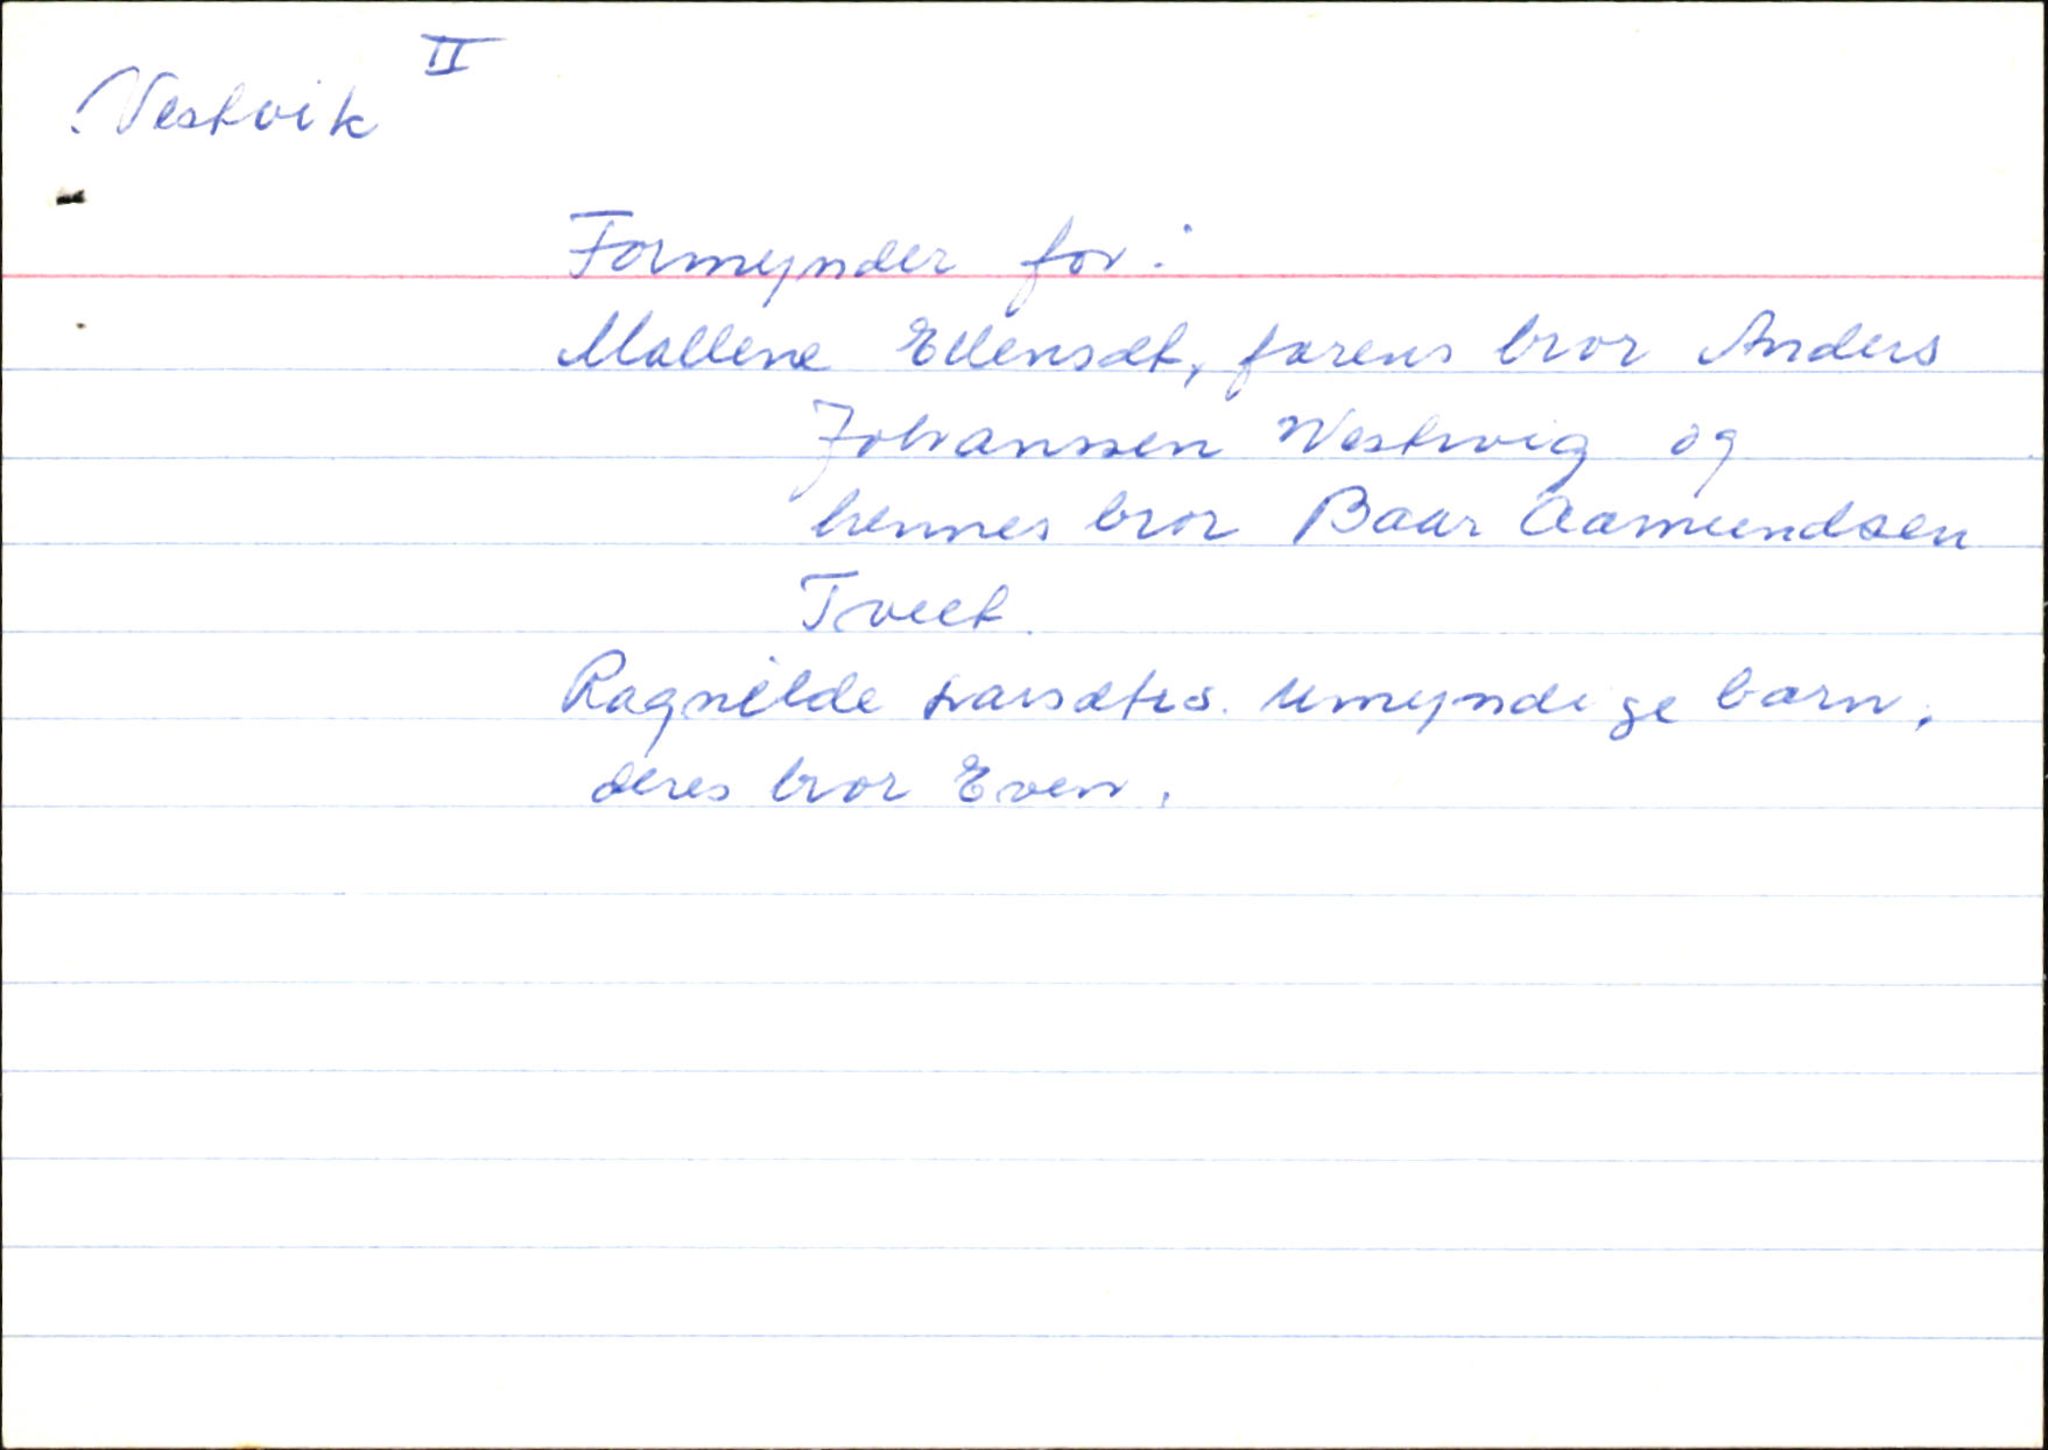 Vestvik II
Formynder for:
Mallene Ellensdt, farens bror Anders
Johanssen Westwig og
hennes bror Baar Aamundsen
Tveet.
Ragnilde Ivarsdtrs. umyndige barn,
deres bror Even.